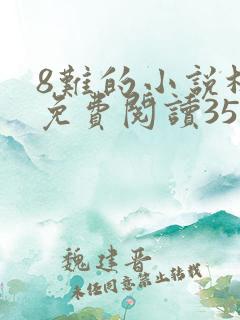 8難的小說
免費閱讀35
魏建晋
未任同意禁止转载